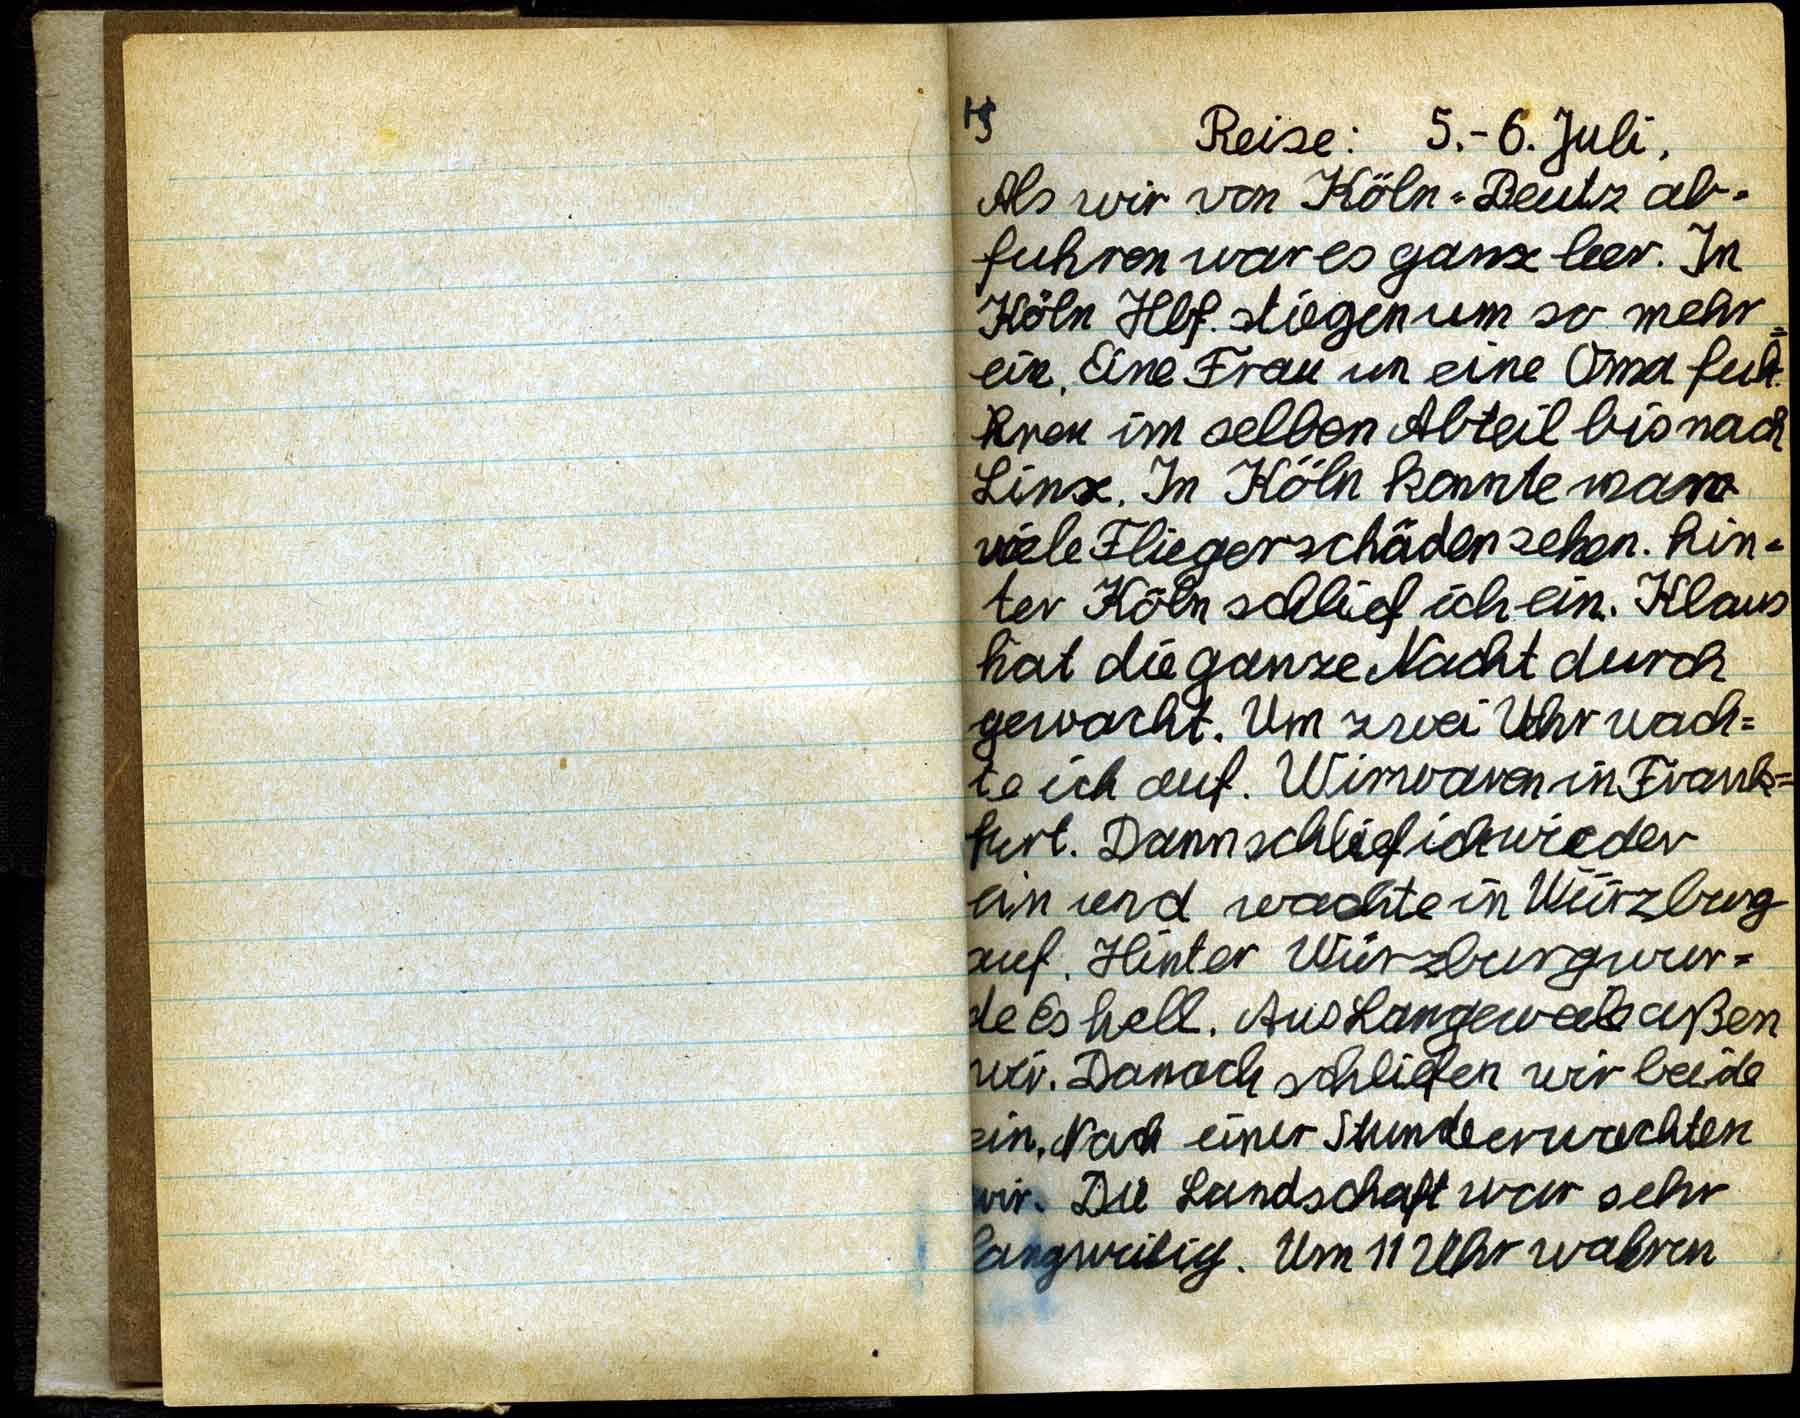 Reise: 5.-6. Juli.
Als wir von Köln-Deutz ab-
fuhren war es ganz leer. In
Köln Hbf. stiegen um so mehr
ein. Eine Frau un eine Oma fuh=
hren im selben Abteil bis nach
Linz. In Köln konnte man
viele Fliegerschäden sehen. hin-
ter Köln schlief ich ein. Klaus
hat die ganze Nacht durch
gewacht. Um zwei Uhr wach=
te ich auf. Wir waren in Frank=
furt. Dann schlief ich wieder
ein und wachte in Würzburg
auf. Hinter Würzburg wur=
de es hell. Aus Langeweile aßen
wir. Danach schliefen wir beide
ein. Nach einer Stunde erwachten
wir. Die Landschaft war sehr
langweilig. Um 11 Uhr wahren